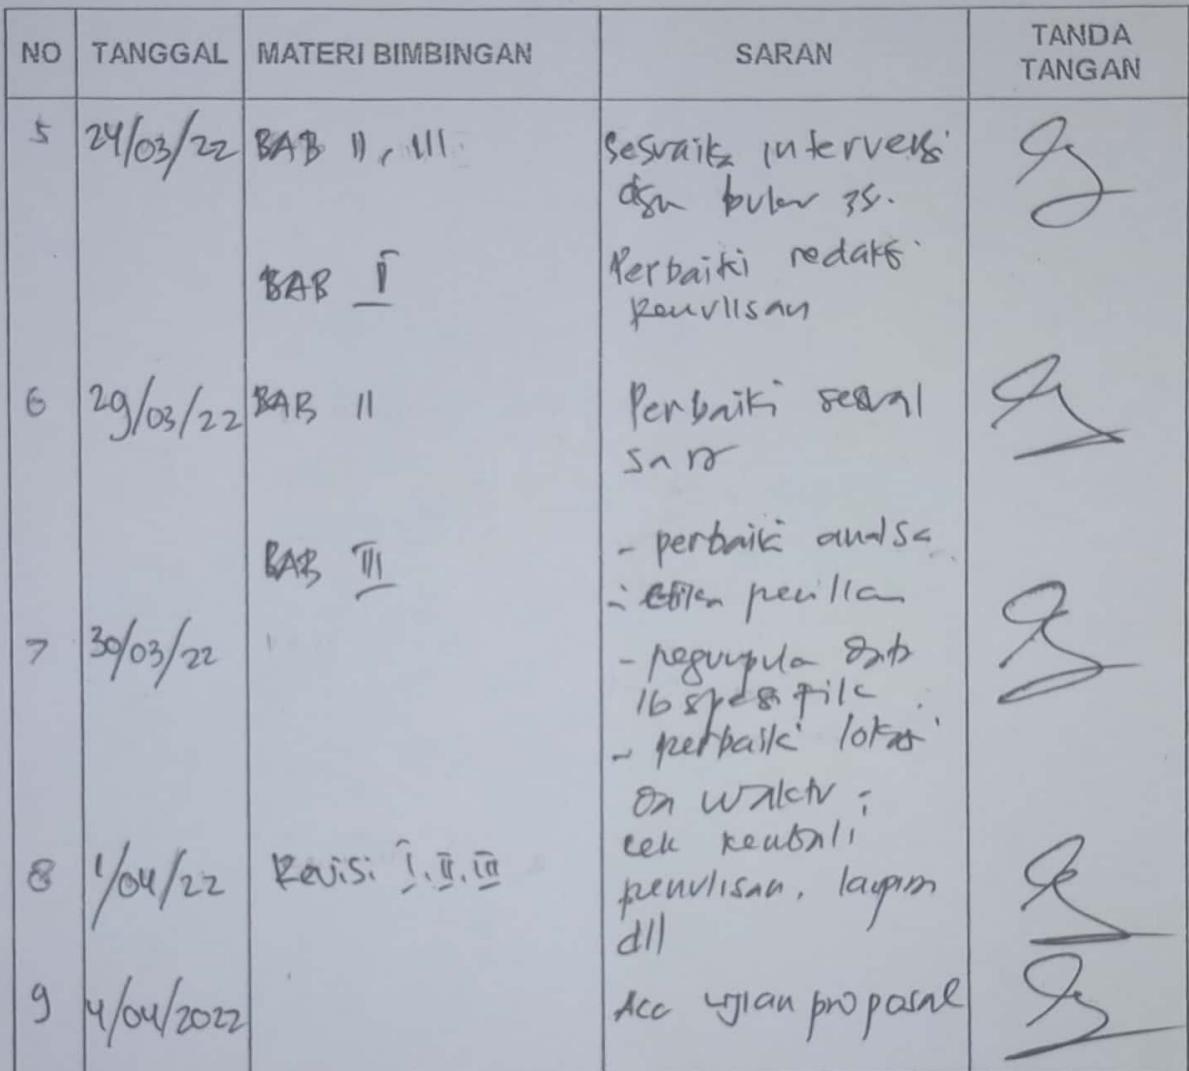 NO TANGGAL MATERI BIMBINGAN SARAN TANDA TANGAN
5 24/03/22 BAB II, III Sesuaik intervensi
dgn
BAB I Perbaiki redaksi
penulisan
6 29/03/22 BAB II Perbaiki sesuai
saran
BAB III - perbaiki analisa
- etika
7 30/03/22 - data
lb spesifik
- perbaiki lokasi
dn waktu
cek kembali
8 1/04/22 Revisi I, II, III penulisan,
dll
9 4/04/2022 Acc ujian proposal